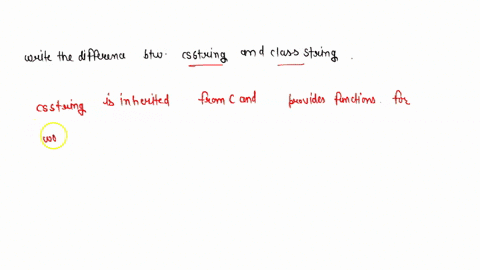 write the difference btw. csstring and class string .
csstring is inherited from C and provides functions for
wo